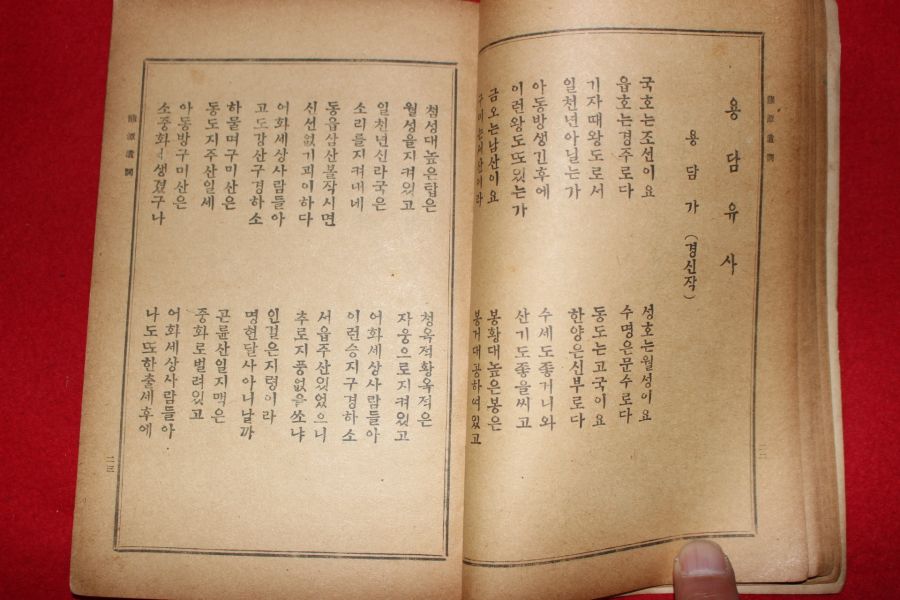 용담유사
용담가 (경신작)
국호는조선이요 성호는월성이요
읍호는경주로다 수명은문수로다
기자때왕도로서 동도는고국이요
일천년아닐는가 한양은신부로다
아동방생긴후에 수세도좋거니와
이런왕도또있는가 산기도좋을씨고
금오는남산이요 봉황대높은봉은
구미는서산이라 봉거대공하여있고
二二
첨성대높은탑은 청옥적황옥적은
월성을지켜있고 자웅으로지켜있고
일천년신라국은 어화세상사람들아
소리를지켜내네 이런승지구경하소
동읍삼산볼작시면 서읍주산있었으니
신선없기괴이하다 추로지풍없을쏘냐
어화세상사람들아 인걸은지령이라
고도강산구경하소 명현달사아니날까
하물며구미산은 곤륜산일지맥은
동도지주산일세 중화로벌려있고
아동방구미산은 어화세상사람들아
소중화생겼구나 나도또한출세후에
龍潭遺
二三